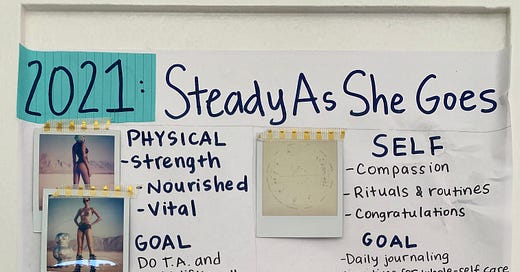 2021: Steady As She Goes
PHYSICAL
-Strength
-Nourished
-Vital
GOAL
Do T.A. and
SELF
-Compassion
-Rituals & routines
-Congratulations
GOAL
-Daily journaling